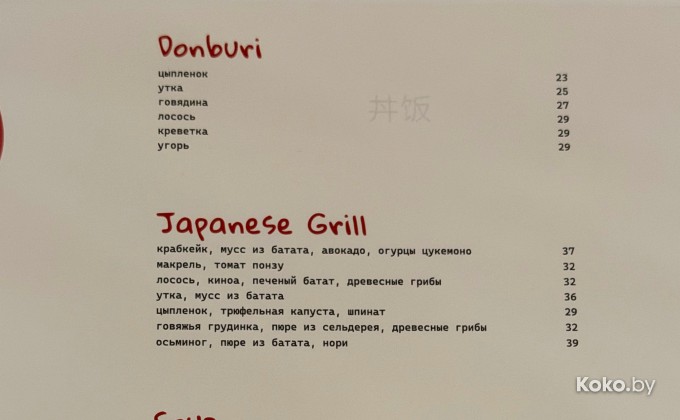 Donburi
цыпленок 23
утка 25
говядина 27
лосось 29
креветка 29
угорь 29
丼饭
Japanese Grill
крабкейк, мусс из батата, авокадо, огурцы цукемоно 37
макрель, томат понзу 32
лосось, киноа, печеный батат, древесные грибы 32
утка, мусс из батата 36
цыпленок, трюфельная капуста, шпинат 29
говяжья грудинка, пюре из сельдерея, древесные грибы 32
осьминог, пюре из батата, нори 39
Koko.by